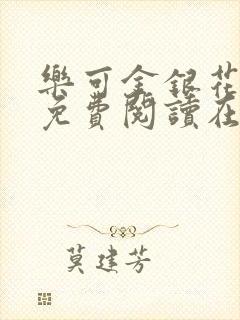 樂可金銀花
免費閱讀在
莫建芳